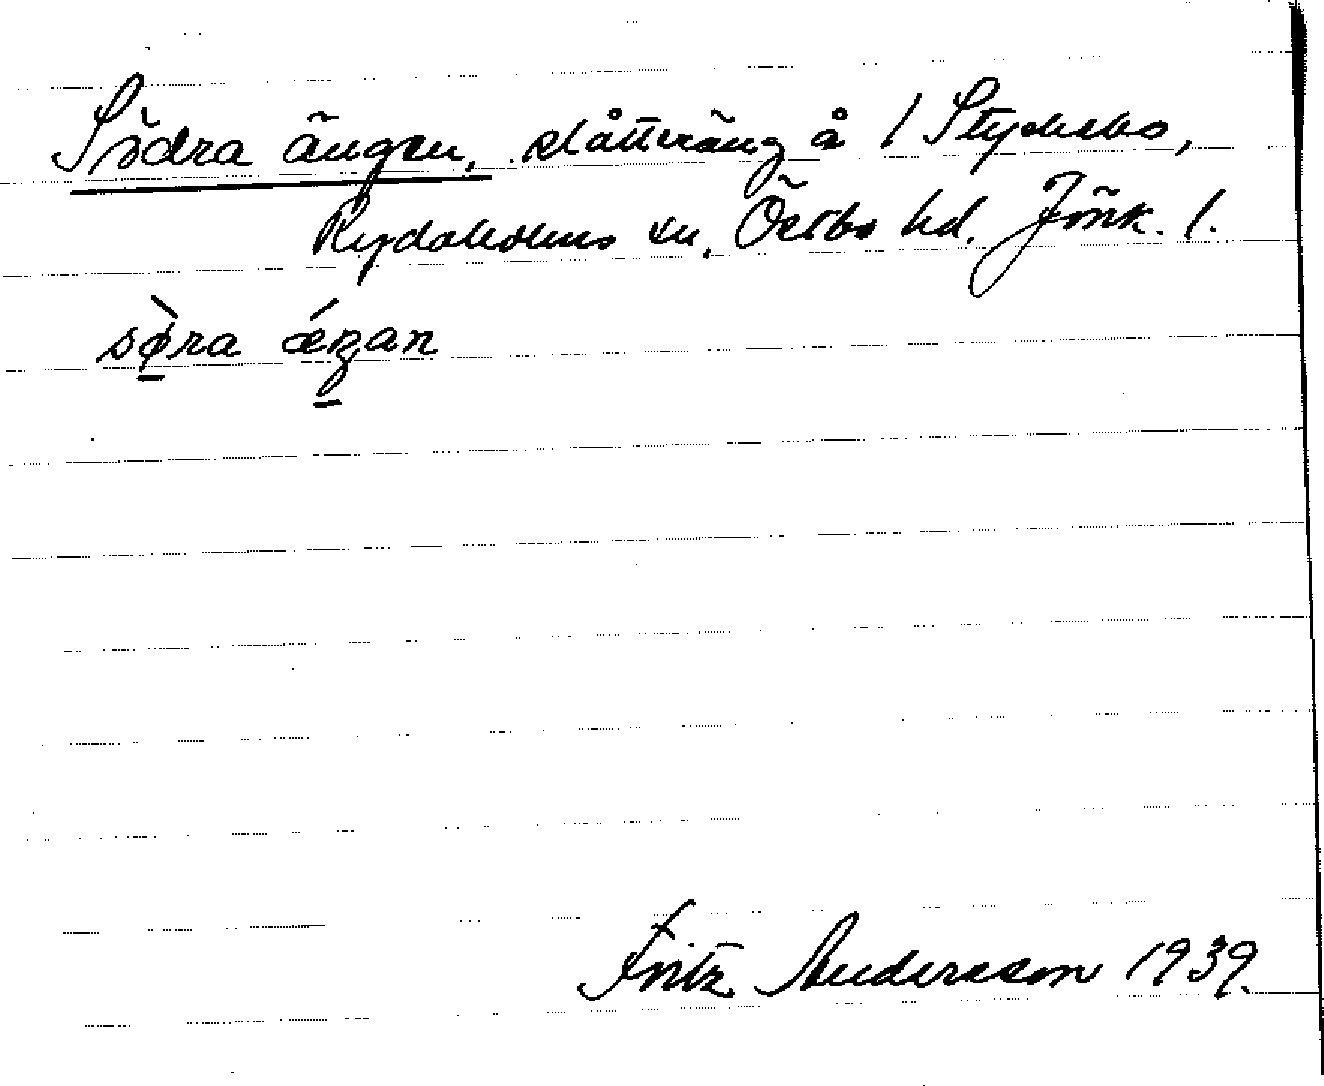 Södra ängen, slåtteräng å 1 Styckebo,
Rydaholms sn, Östbo hd. Jönk. l.
sø̀ra ǽŋan
Fritz Andersson 1939.